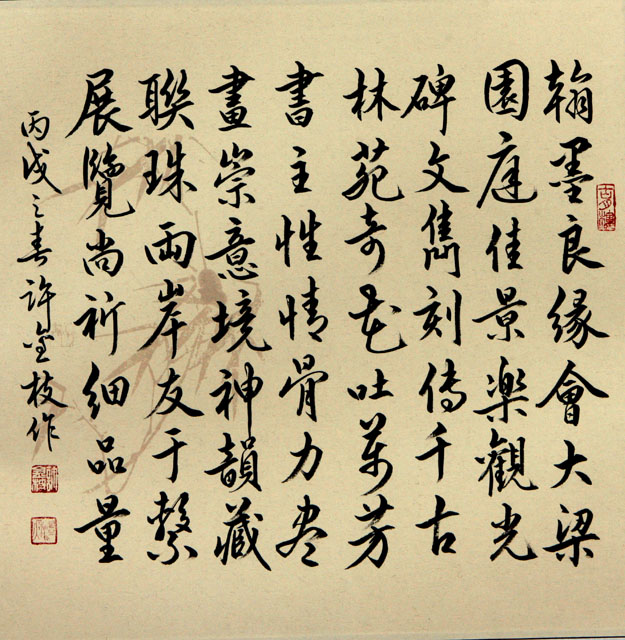 翰墨良緣會大梁
園庭佳景樂觀光
碑文雋刻傳千古
林苑奇花吐萬芳
書主性情骨力尽
畫崇意境神韻藏
聯珠両岸友于繫
展覽尚祈細品量
丙戌之春許金枝作